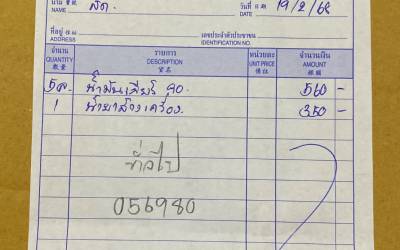 นาม 寶號 สด. วันที่ 日期 19/2/68
NAME DATE
ที่อยู่ 住址 เลขประจำตัวประชาชน
ADDRESS IDENTIFICATION NO.
จำนวน รายการ หน่วยละ จำนวนเงิน
QUANTITY DESCRIPTION UNIT PRICE AMOUNT
數量 貨名 價註 銀額
5ล. น้ำมันเกียร์ 90. 560 -
1 น้ำยาล้างเครื่อง. 350 -
056980